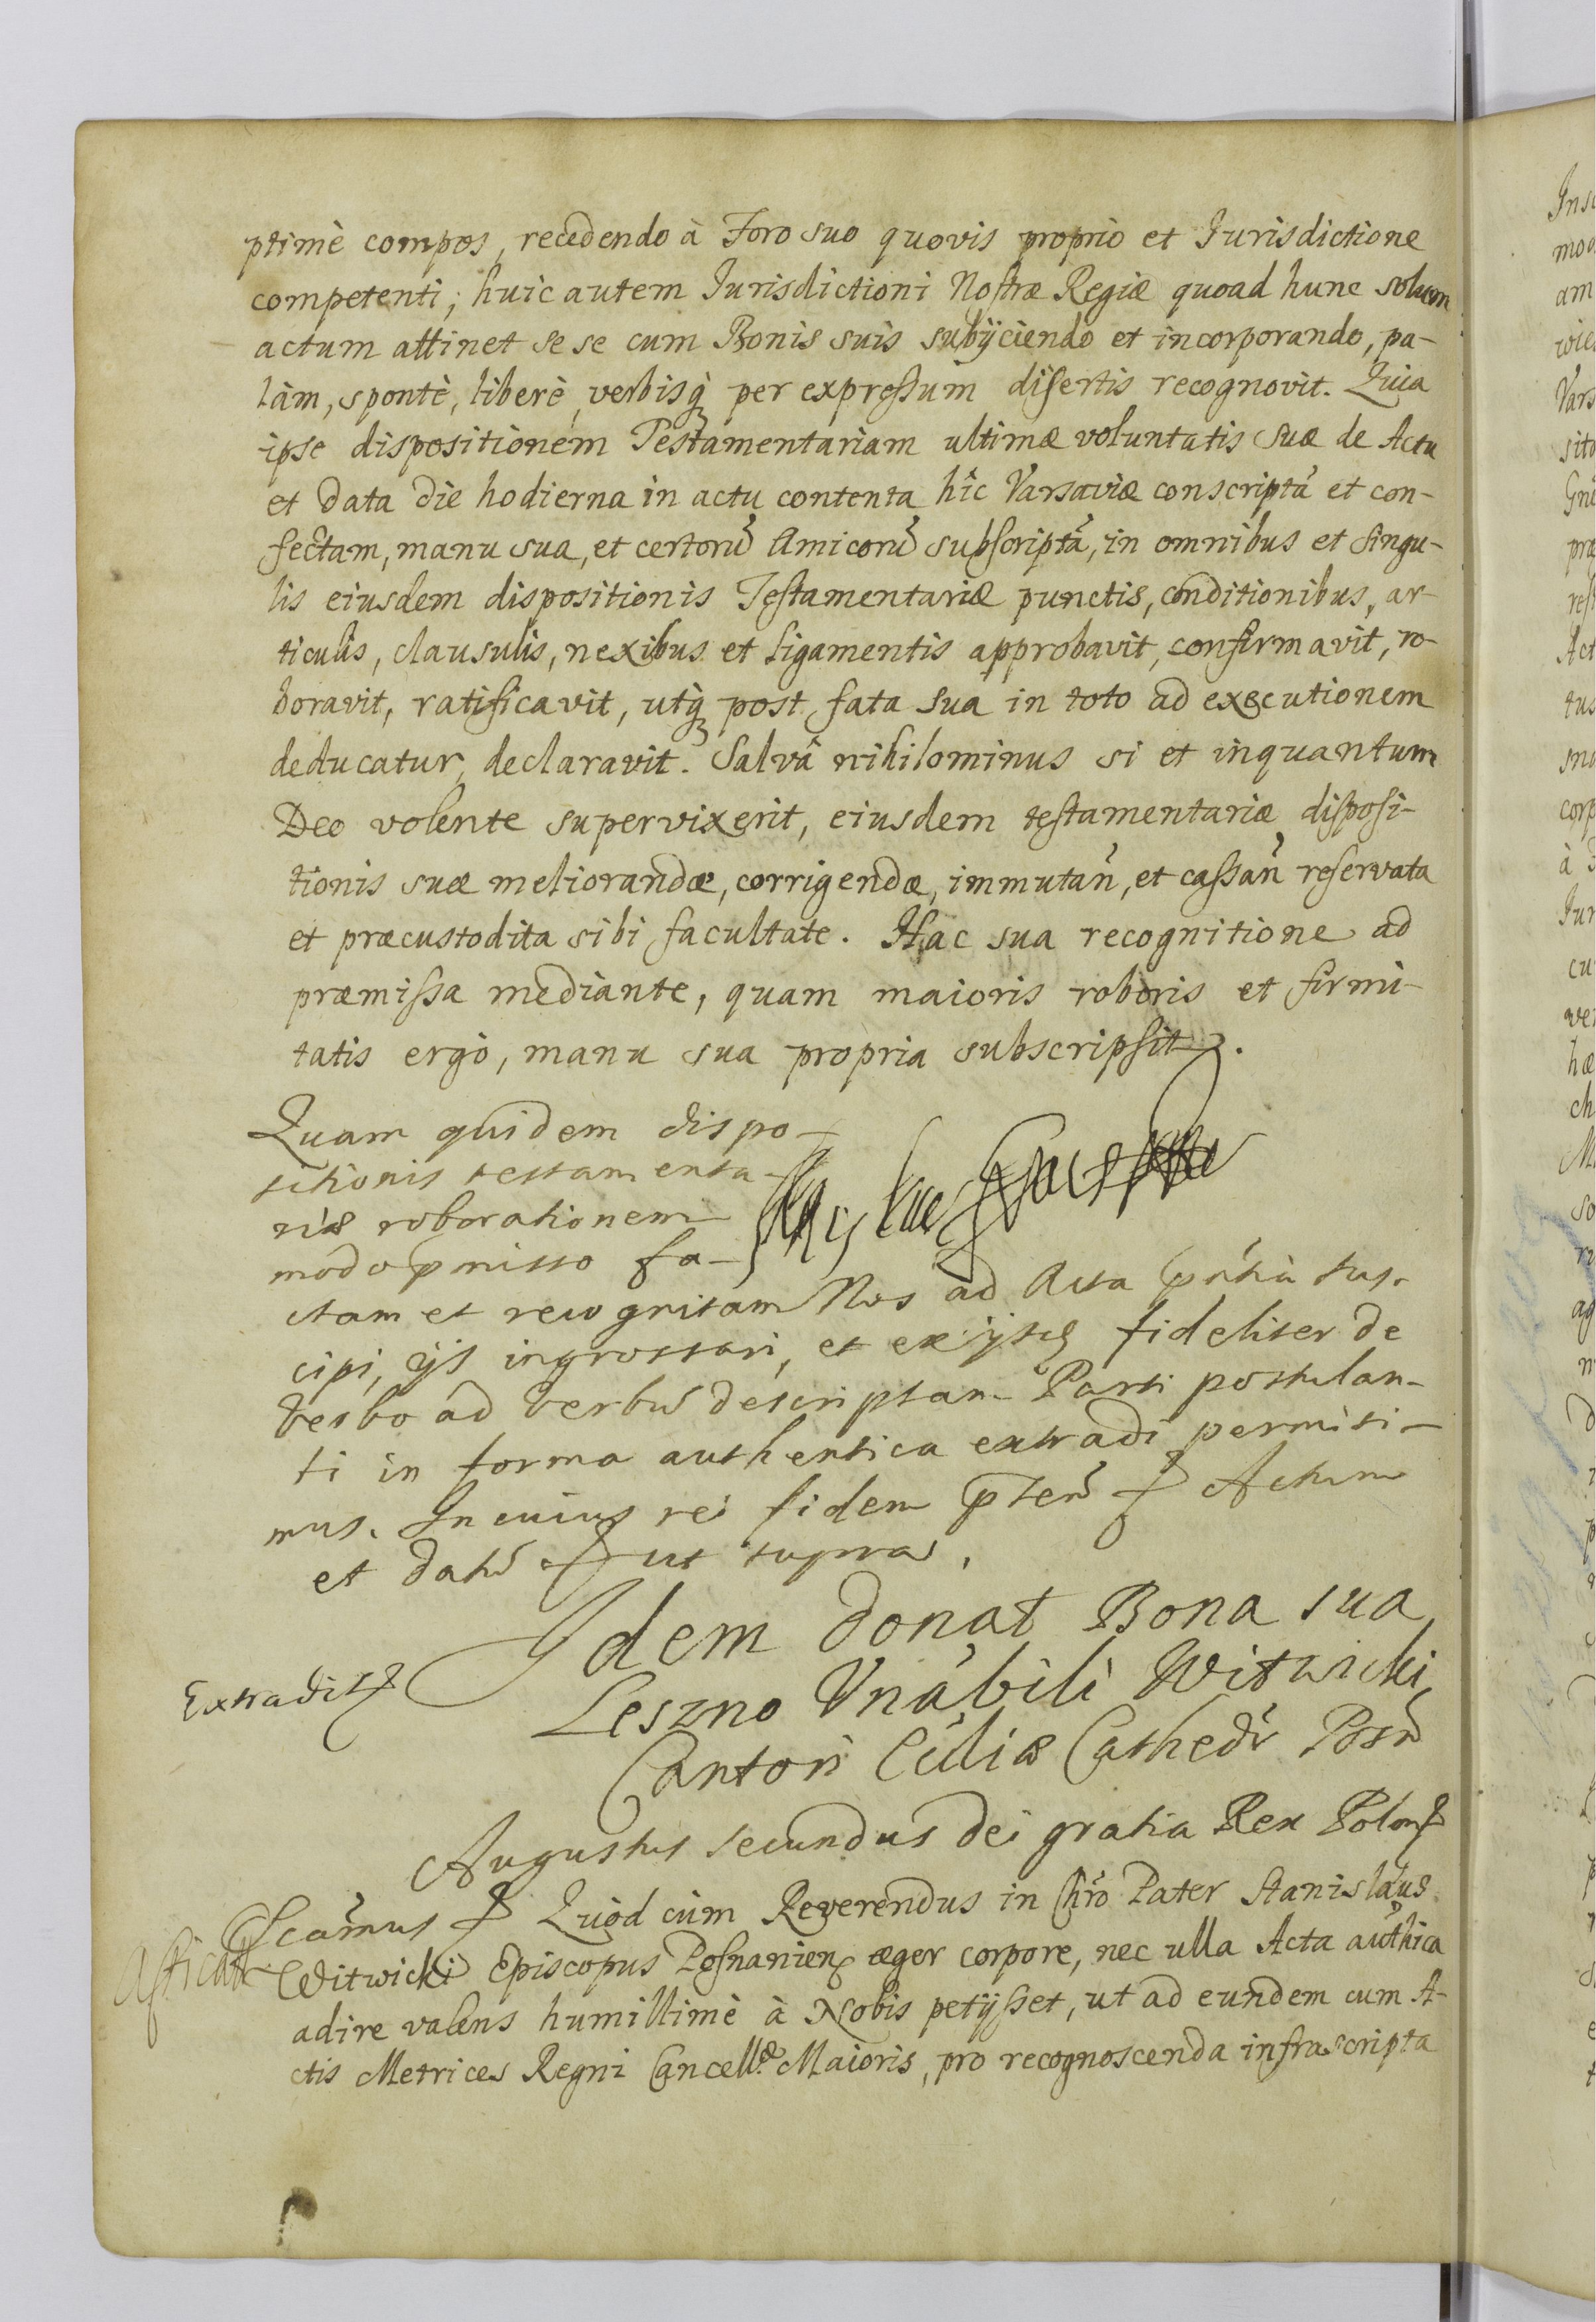 ptimè compos, recedendo à Foro suo quovis proprio et Iurisdictione
competenti; huic autem Iurisdictioni Nostræ Regiæ quoad hunc solum
actum attinet se se cum Bonis suis subÿciendo et incorporando, pa-
làm, spontè, liberè, verbisq́ per expressum disertis recognovit. Quia
ipse dispositionem Testamentariam ultimæ voluntatis suæ de Actu
et data die hodierna in actu contenta hîc Varsaviæ conscriptã et con-
fectam, manu sua, et certorũ Amicorũ subscriptã, in omnibus et singu-
lis eiusdem dispositionis Testamentariæ punctis, conditionibus, ar-
ticulis, clausulis, nexibus et ligamentis approbavit, confirmavit, ro-
boravit, ratificavit, utq́ post fata sua in toto ad executionem
deducatur, declaravit. Salvâ nihilominus si et inquantum
Deo volente supervixerit, eiusdem testamentariæ disposi-
tionis suæ meliorandæ, corrigendæ, immutan̄, et cassan̄ reservata
et præcustodita sibi facultate. Hac sua recognitione ad
præmissa mediante, quam maioris roboris et firmi-
tatis ergò, manu sua propria subscripsit.
Quam quidem dispo-
sitionis testamenta-
riæ roborationem
modo pmisso fa-
ctam et recognitam Nos ad Acta p̃ntia sus-
cipi, ijs ingrossari, et ex ijsdē fideliter de
verbo ad verbũ descriptam Parti postulan-
ti in forma authentica extradi permisi-
mus. In cuius rei fidem p̃sen̄ Actum
et datũ ut supra.
Idem donat Bona sua
Extradit
Leszno Vnábili Witwicki
Cantori Ećcliæ Cathedr̃ Posñ
Augustus secundus Dei gratia Rex Polon
Significamus Quòd cùm Reverendus in Chrõ Pater Stanislaus
Witwicki Episcopus Posnanien æger corpore, nec ulla Acta authica
adire valens humillimè à Nobis petÿsset, ut ad eundem cum A-
ctis Metrices Regni Cancellæ Maioris, pro recognoscenda infrascripta